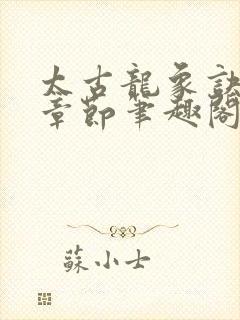 太古龍象訣
章節筆趣閣
蘇小士